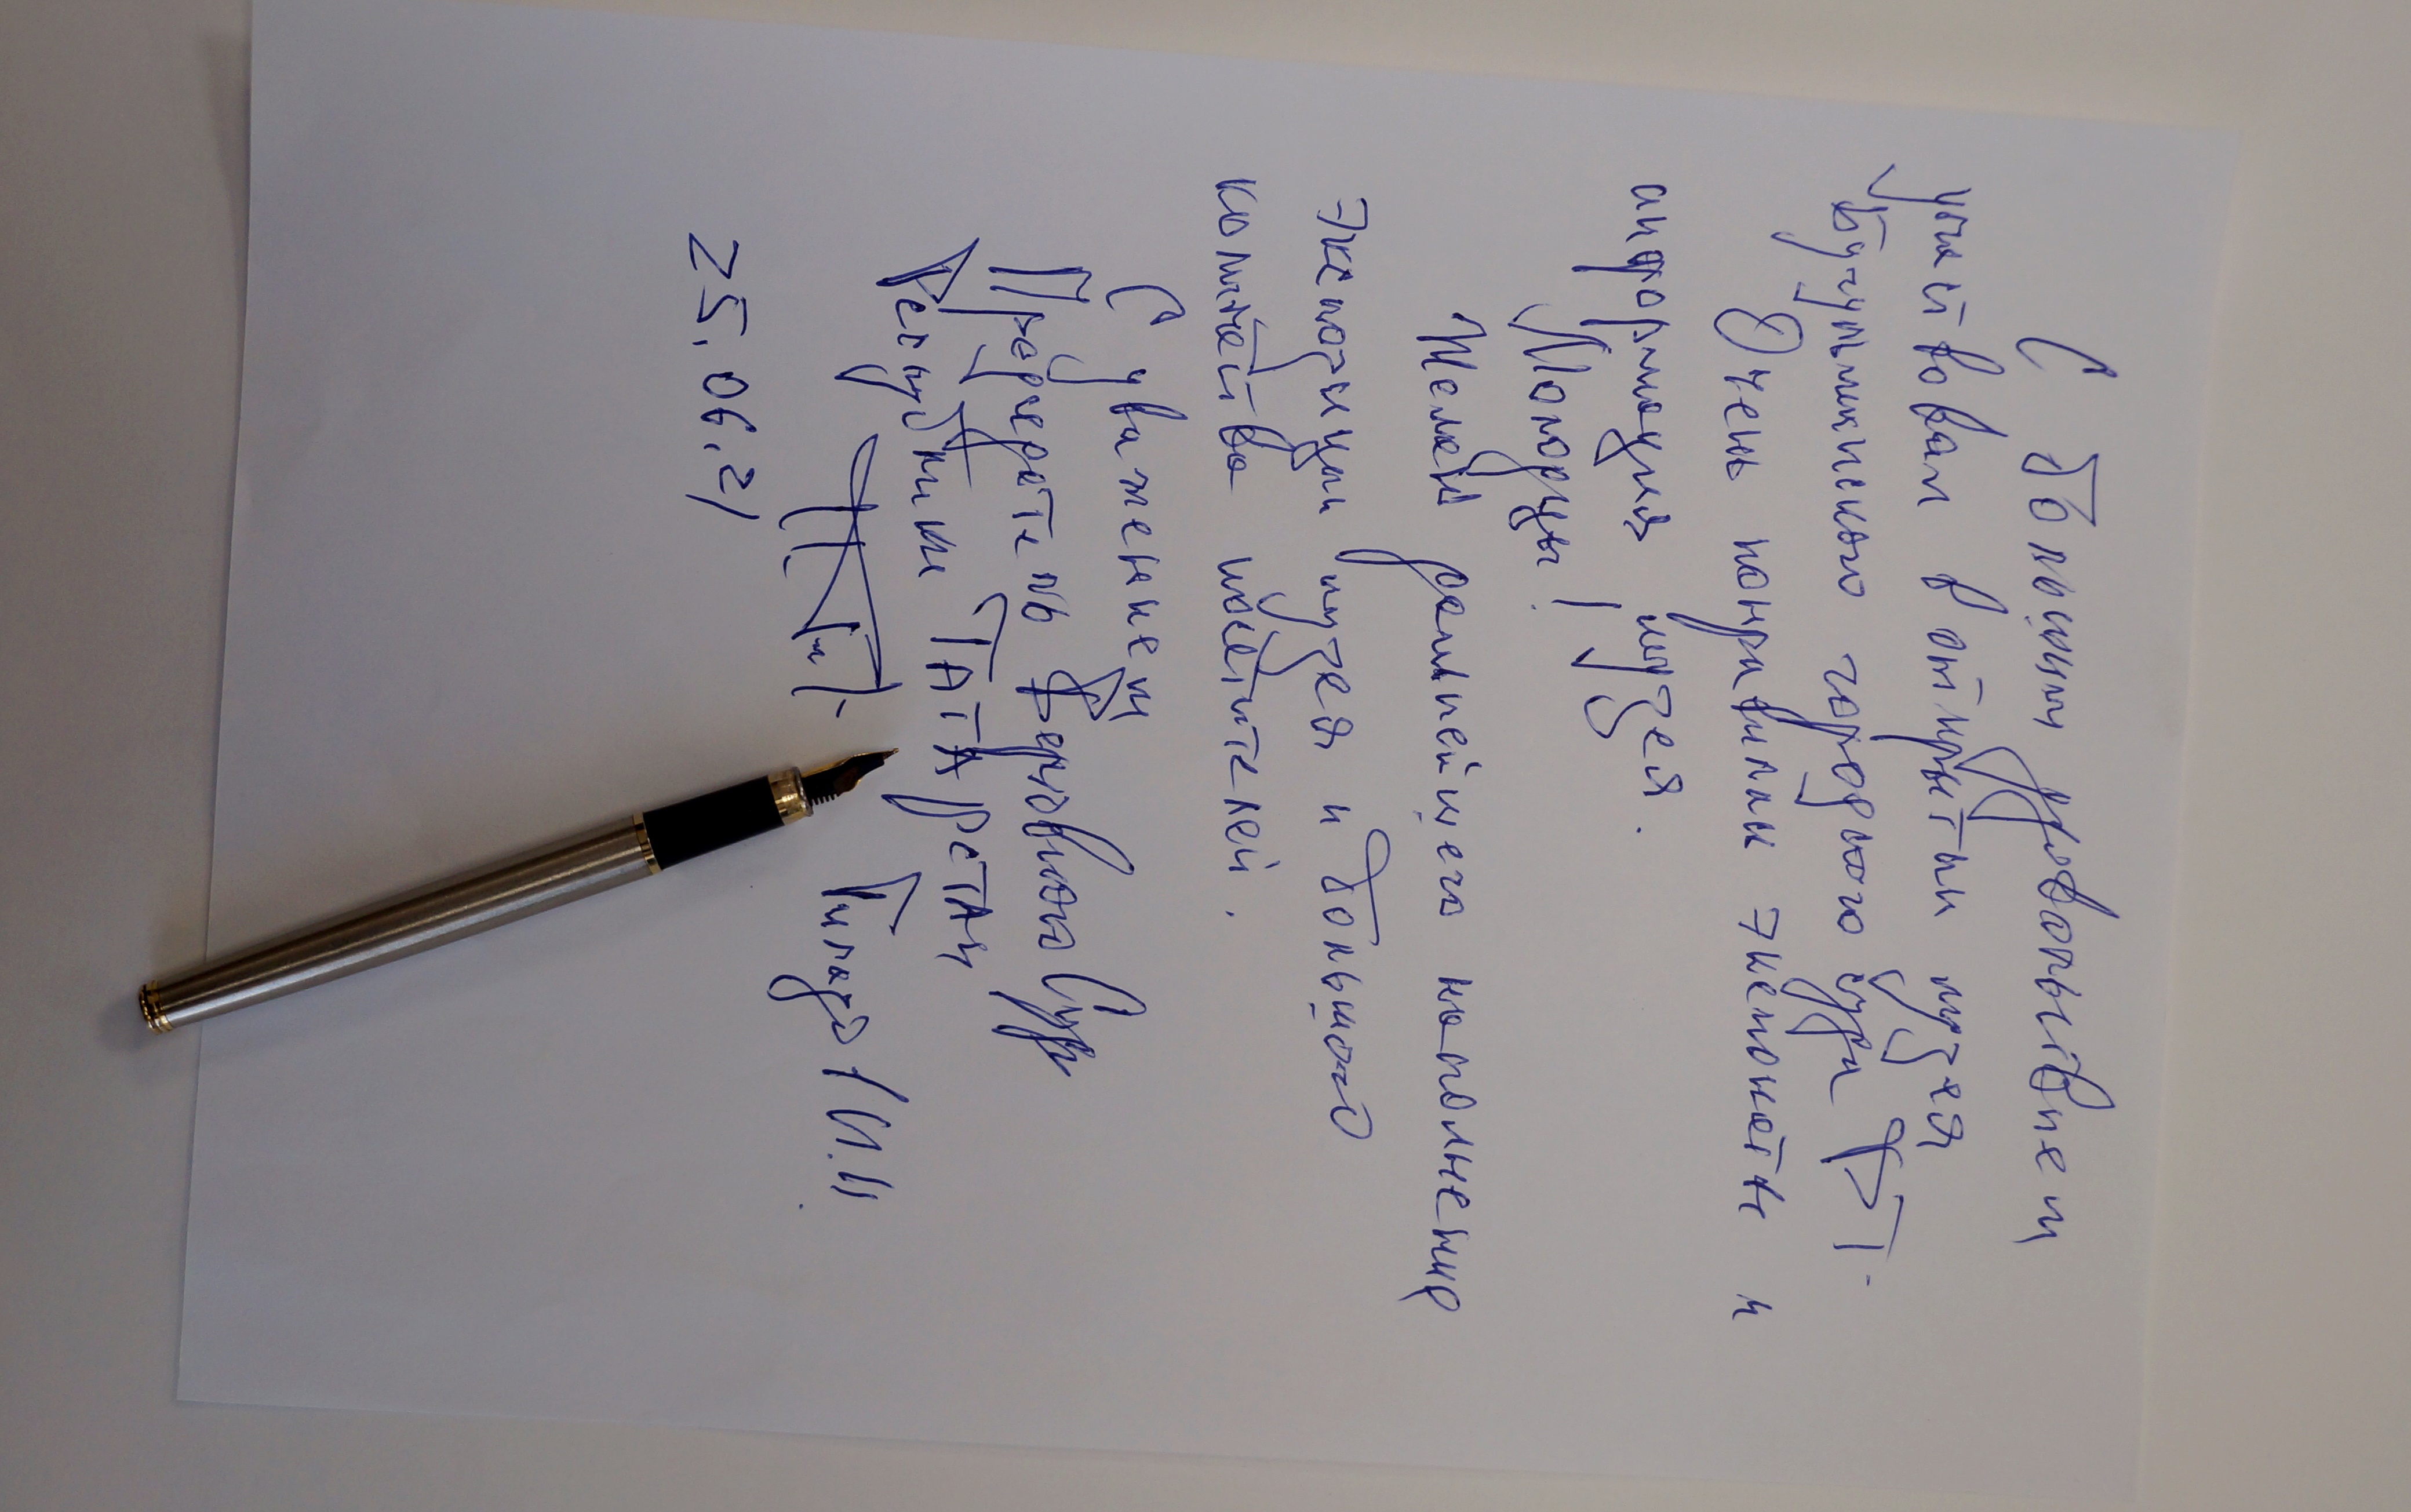 С большим удовольствием
участвовал в открытии музея
Бугульминского городского суда РТ.
Очень понравились экспонаты и
информация музея.
Молодцы!
Желаю дальнейшего пополнения
экспозиции музея и большого
количества посетителей.
С уважением
Председатель Верховного Суда
Республики ТАТАРСТАН
Гилазов И.И.
25.06.21